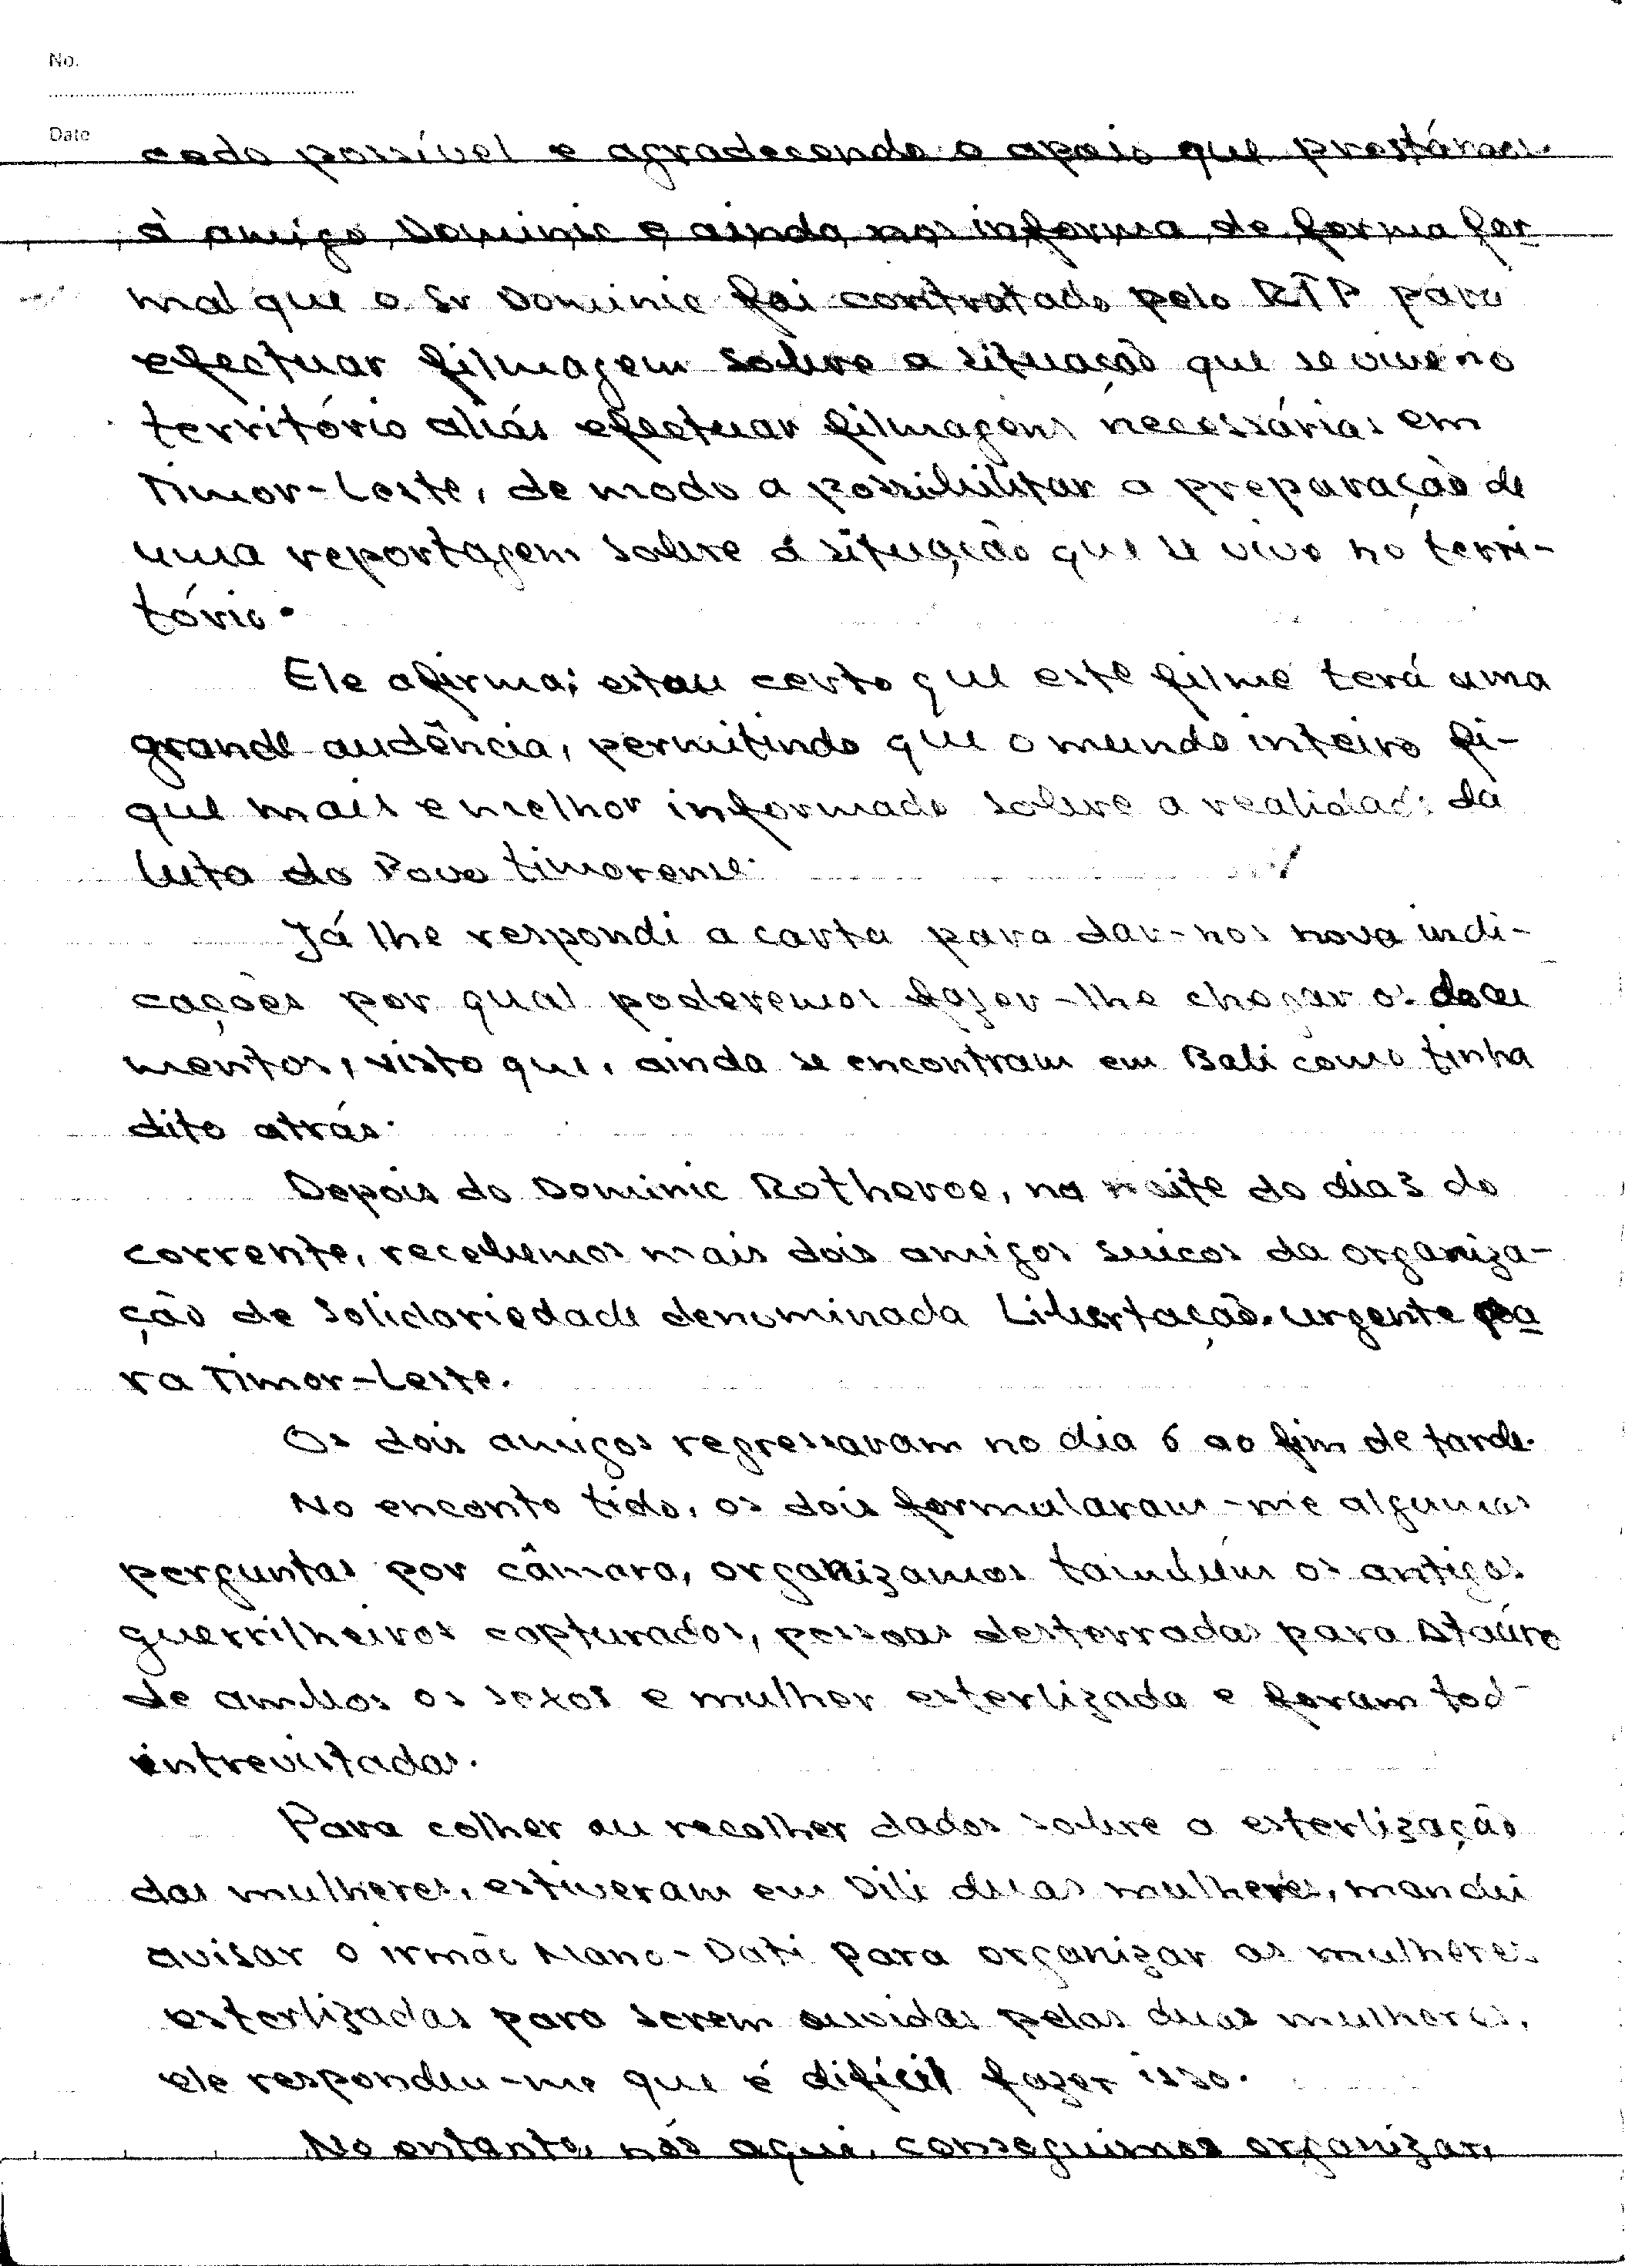 No.
Date
cedo possível e agradecendo o apoio que prestámos
à amigo Dominic e ainda nos informa de forma for
mal que o Sr Dominic foi contratado pelo RTP para
efectuar filmagem sobre a situação que se vive no
território aliás efectuar filmagens necessárias em
Timor-Leste, de modo a possibilitar a preparação de
uma reportagem sobre a situação que se vive no terri-
tório.
Ele afirma; estou certo que este filme terá uma
grande audência, permitindo que o mundo inteiro fi-
que mais e melhor informado sobre a realidade da
luta do Povo timorense.
Já lhe respondi a carta para dar-nos nova indi-
cações por qual poderemos fazer-lhe chegar os docu
mentos, visto que, ainda se encontram em Bali como tinha
dito atrás.
Depois do Dominic Rotheroe, na noite do dia 3 do
corrente, recebemos mais dois amigos suicos da organiza-
ção de Solidariedade denominada Libertação urgente pa
ra Timor-Leste.
Os dois amigos regressaram no dia 6 ao fim de tarde.
No enconto tido, os dois formularam-me algumas
perguntas por câmara, organizamos também os antigos
guerrilheiros capturados, pessoas desterradas para Ataúro
de ambos os sexos e mulher esterlizada e foram tod
entrevistados.
Para colher ou recolher dados sobre a esterlização
das mulheres, estiveram em Dili duas mulheres, mandei
avisar o irmão Mano-Dati para organizar as mulheres
esterlizadas para serem ouvidas pelas duas mulheres,
ele respondeu-me que é difícil fazer isso.
No entanto, nós aqui, conseguimos organizar,